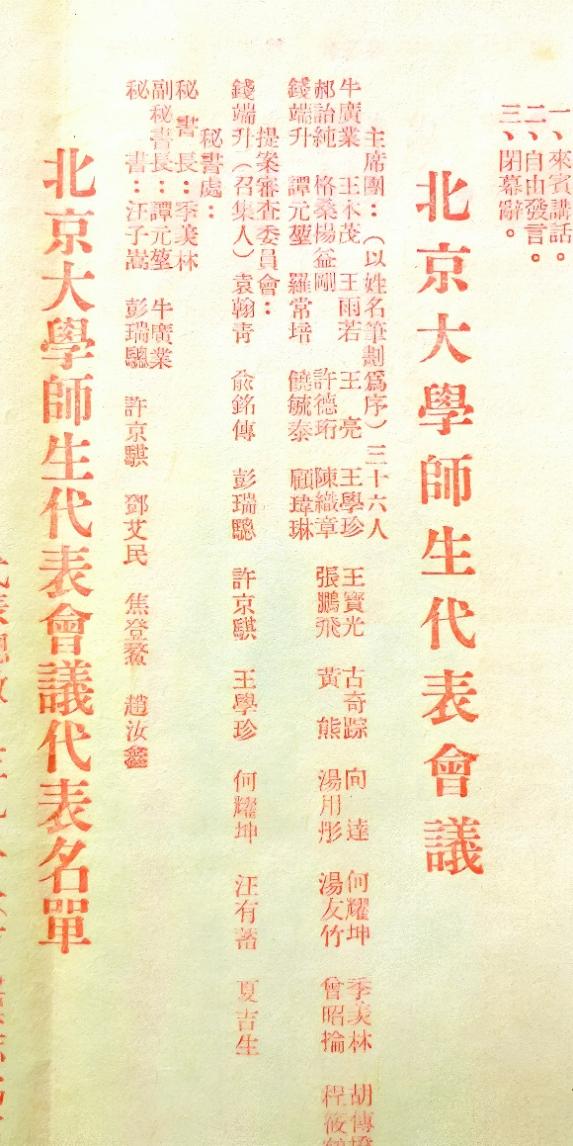 一、來賓講話。
二、自由發言。
三、閉幕辭。
北京大學師生代表會議
主席團：（以姓名筆劃爲序）三十六人
牛廣業 王木茂 王雨若 王 亮 王學珍 王寶光 古奇踪 向 達 何耀坤 季羨林 胡傳
郝詒純 格桑楊益剛 許德珩 陳織章 張鵬飛 黃 熊 湯用彤 湯友竹 曾昭掄 程筱
錢端升 譚元堃 羅常培 饒毓泰 顧瑋琳
提案審查委員會：
錢端升（召集人）袁翰青 俞銘傳 彭瑞驄 許京騏 王學珍 何耀坤 汪有蕃 夏吉生
秘書處：
秘書長：季羨林
副秘書長：譚元堃 牛廣業
秘書：汪子嵩 彭瑞驄 許京騏 鄧艾民 焦登鰲 趙汝鑫
北京大學師生代表會議代表名單
代表總數